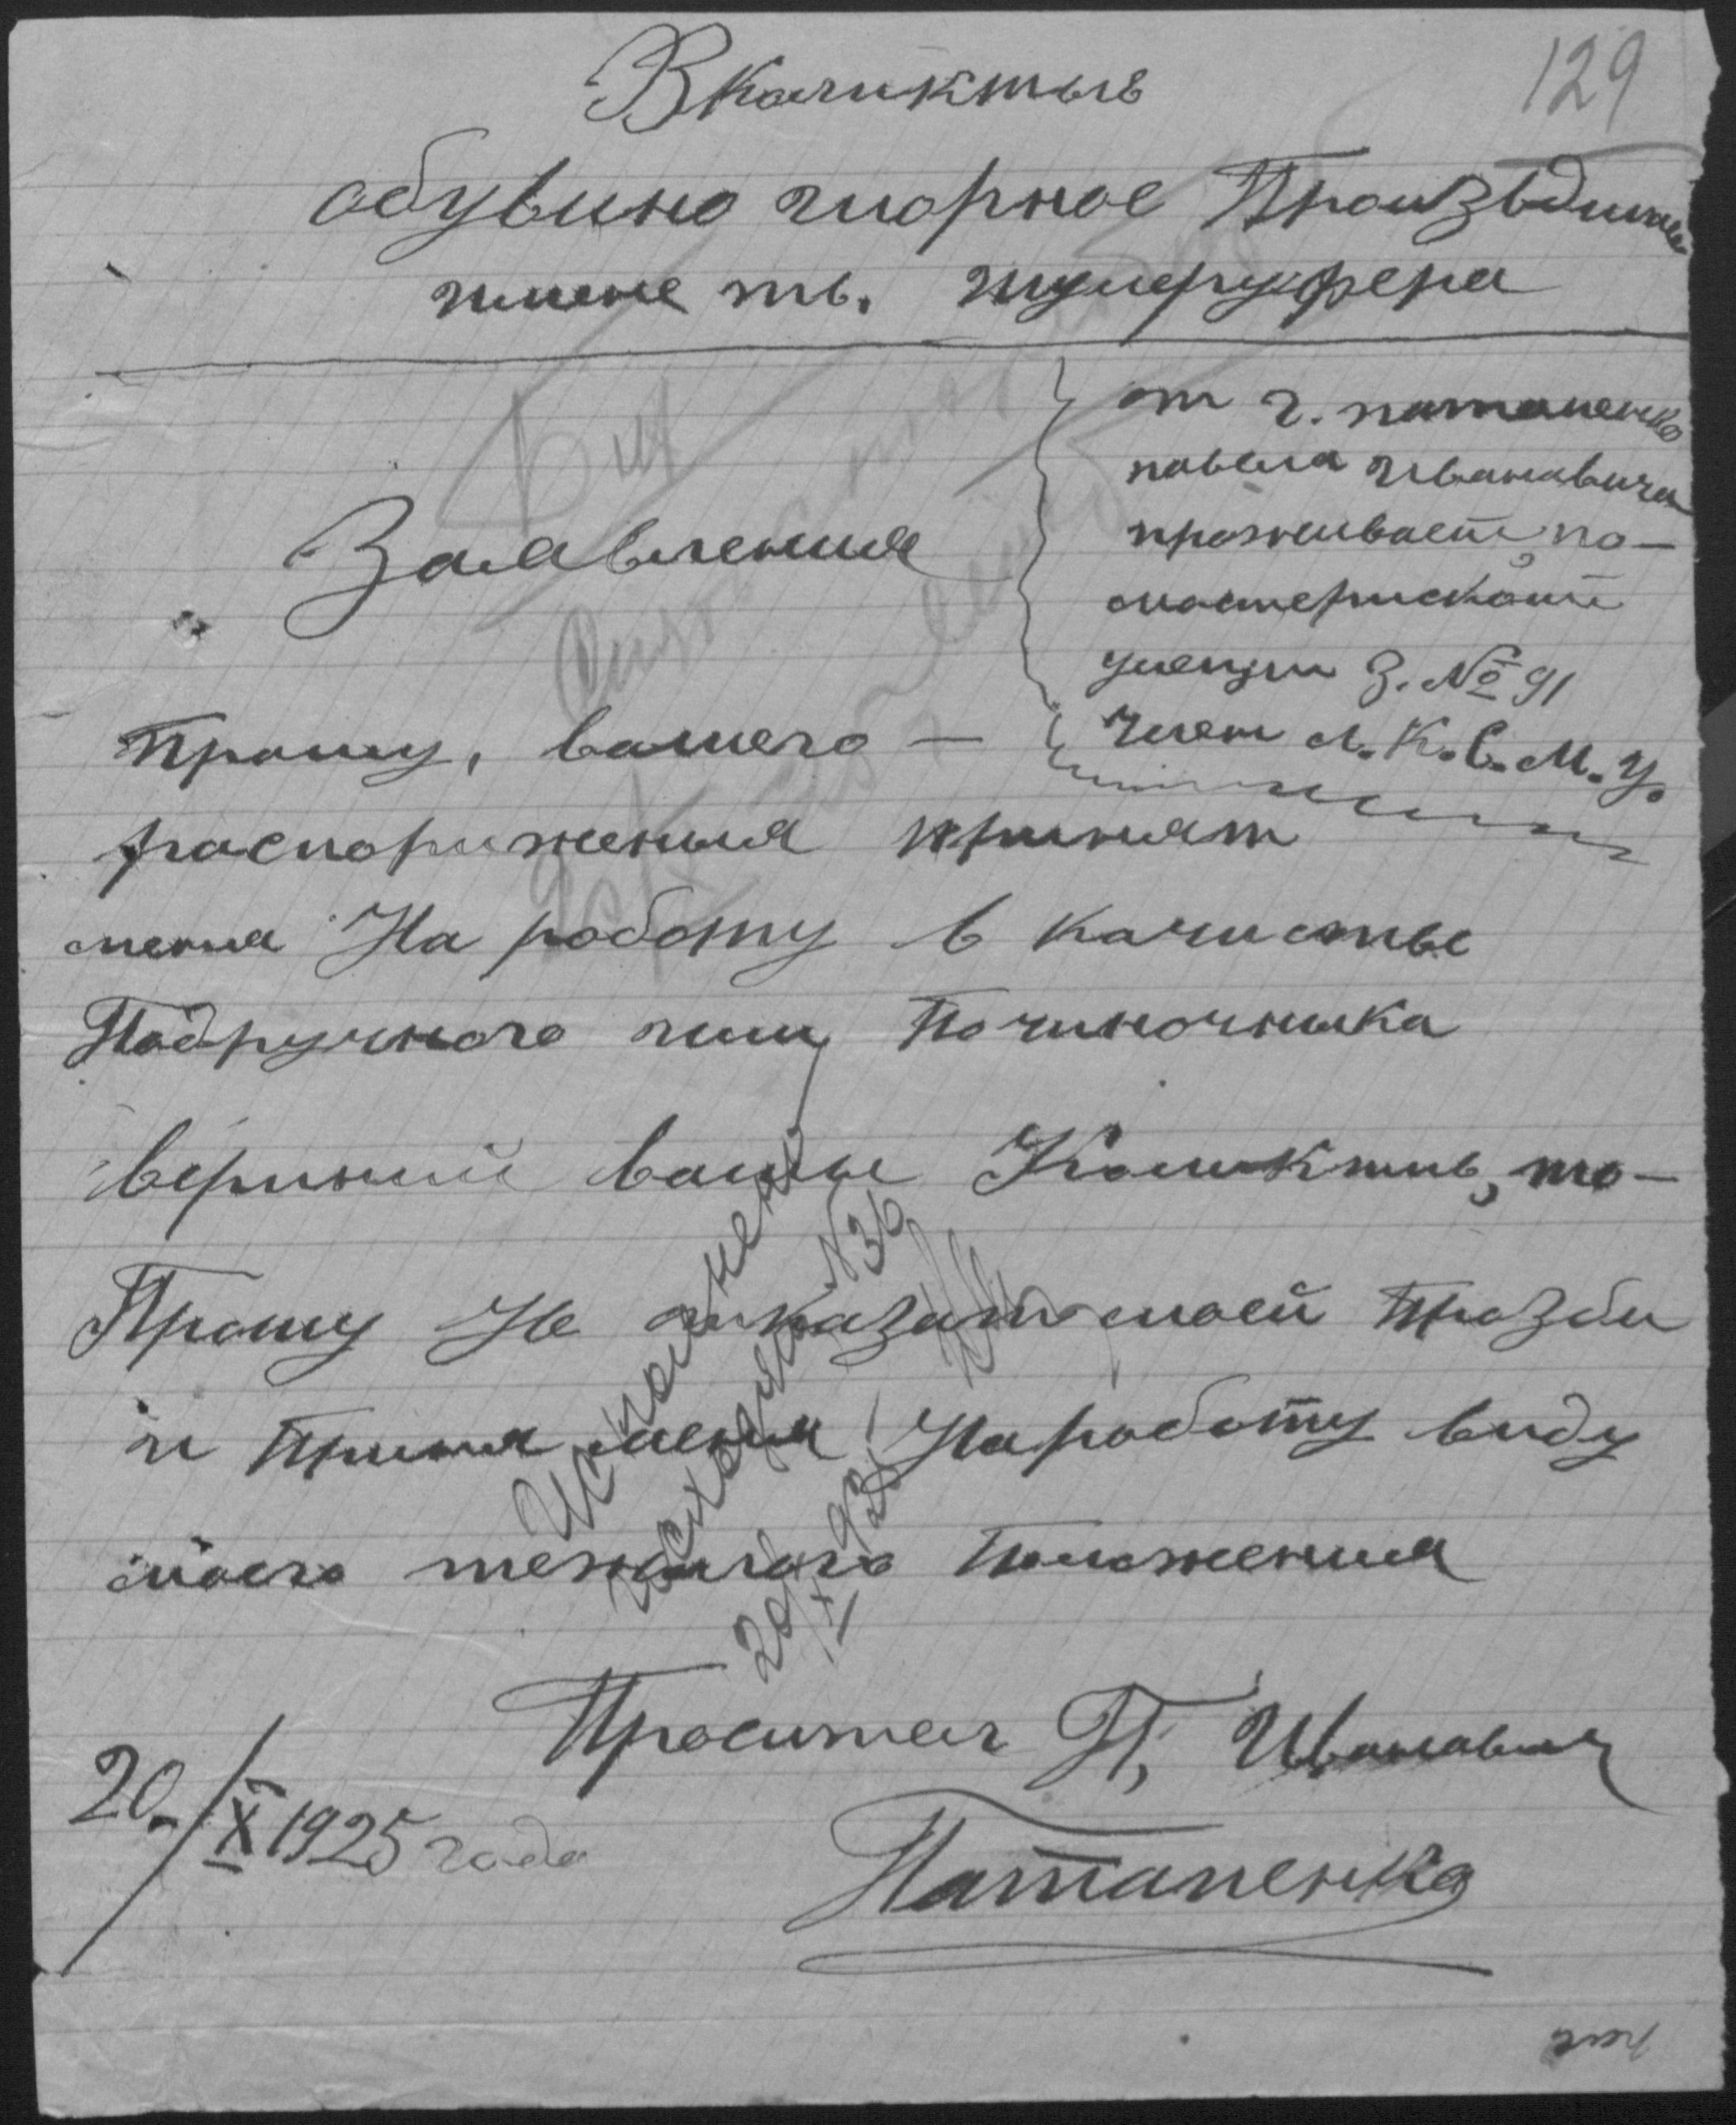 129
В каликтыв
обувино шорное Произвдиние
имене тв. шумеруфера
от г. патапенко
павела Ивановича
проживаети, по-
мастериской
улецы З. № 91
Член Л.К.С.М.У.
Заевления
Прошу, вашего –
распориженыя принят
меня На роботу в качистве
Подручного или Починочника
вериний вашы Коликтив, то–
Прошу Не атказат моей Прозби
и Приня меня На роботу виду
моего тежолого Положения
Исполнено
исходящ. N 36
20/X 925
Проситель П, Иванович
20./X 1925 года
Патапенко